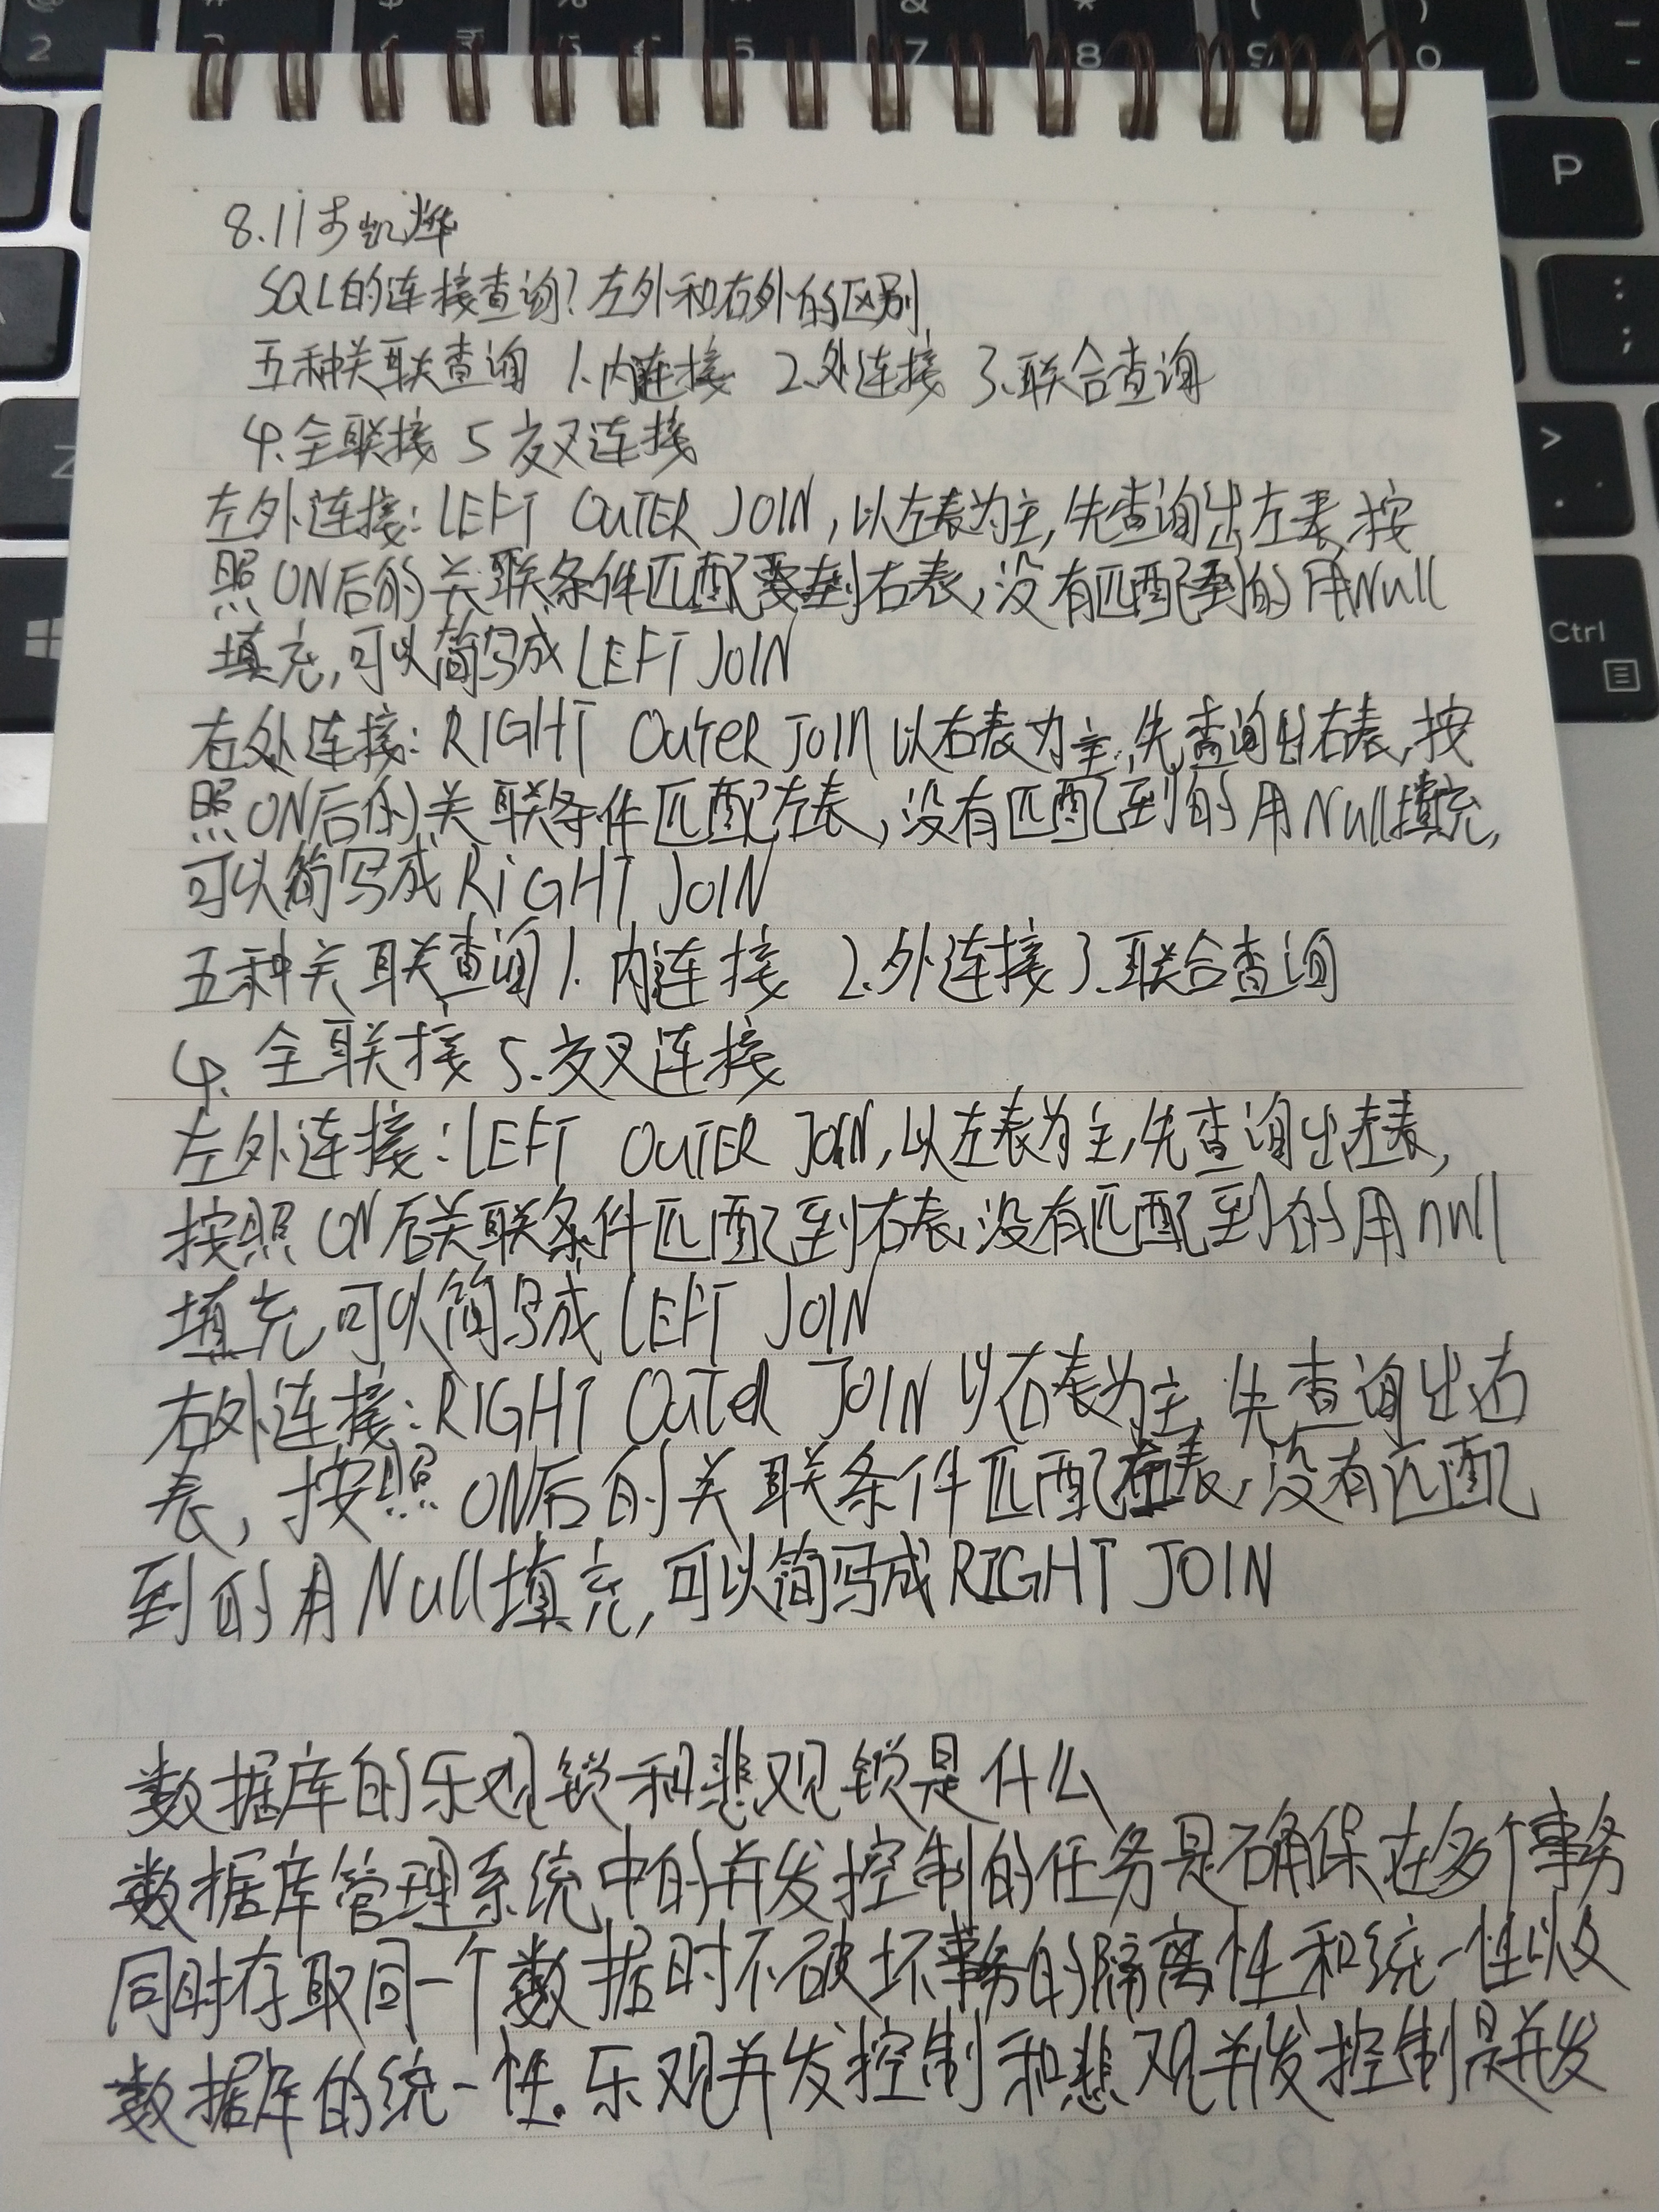 8.11 步凯烨
SQL的连接查询?左外和右外的区别
五种关联查询 1.内连接 2.外连接 3.联合查询
4.全联接 5 交叉连接
左外连接:LEFT OUTER JOIN,以左表为主,先查询出左表,按
照ON后的关联条件匹配到右表,没有匹配到的用Null
填充,可以简写成LEFT JOIN
右外连接:RIGHT OUTER JOIN以右表为主,先查询出右表,按
照ON后的关联条件匹配左表,没有匹配到的用Null填充,
可以简写成RIGHT JOIN
五种关联查询1.内连接 2.外连接3.联合查询
4.全联接 5.交叉连接
左外连接:LEFT OUTER JOIN,以左表为主,先查询出左表,
按照ON后关联条件匹配到右表,没有匹配到的用null
填充,可以简写成LEFT JOIN
右外连接:RIGHT OUTER JOIN以右表为主,先查询出右
表,按照ON后的关联条件匹配左表,没有匹配
到的用Null填充,可以简写成RIGHT JOIN
数据库的乐观锁和悲观锁是什么
数据库管理系统中的并发控制的任务是确保在多个事务
同时存取同一个数据时不破坏事务的隔离性和统一性以及
数据库的统一性。乐观并发控制和悲观并发控制是并发